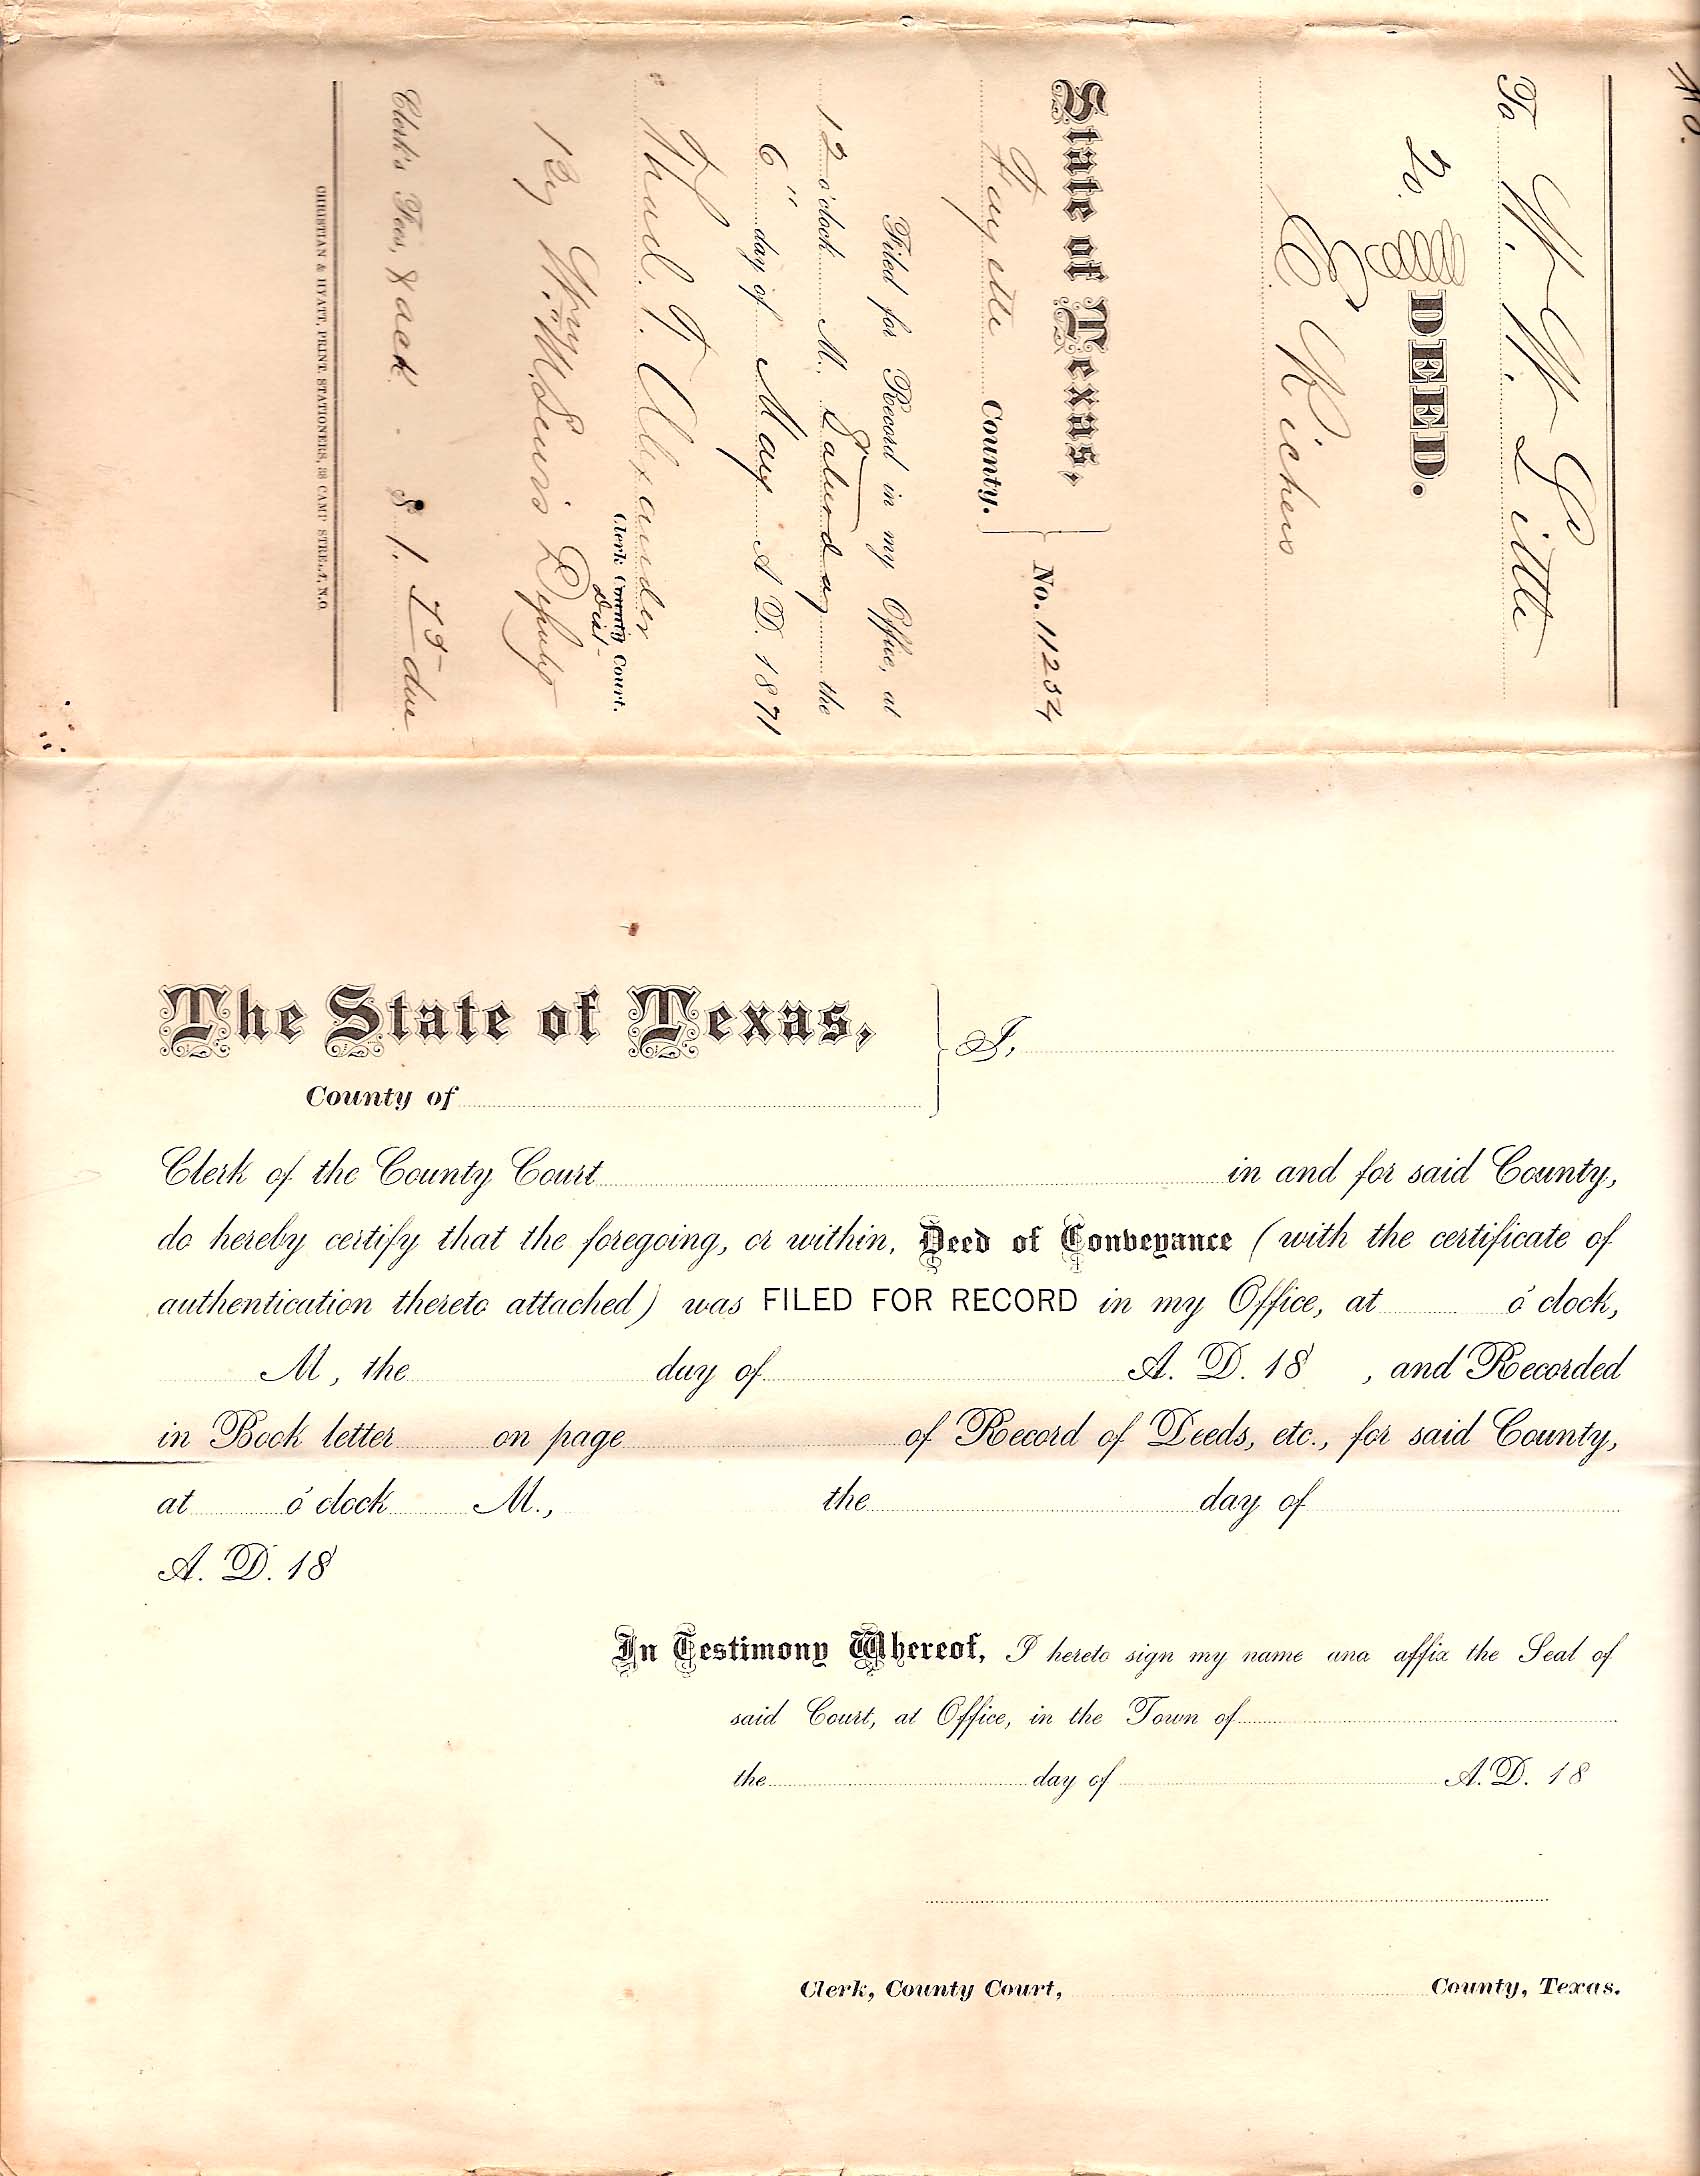 No.
To W. W. Little
To. DEED.
C Richers
State of Texas,
Fayette County. No. 11234
Filed for Record in my Office, at
12 o'clock M. Saturday the
6" day of May A D. 1871
Thad. F. Alexander
Clerk County Court.
Dist
By Wm Lewis Deputy
Clerk's Fees, & ack. $1.75 due
CHRISTIAN & HYATT, PRINT. STATIONERS, 58 CAMP STREET, N.O.
The State of Texas,
County of
I,
Clerk of the County Court in and for said County,
do hereby certify that the foregoing, or within, Deed of Conveyance (with the certificate of
authentication thereto attached) was FILED FOR RECORD in my Office, at o'clock,
M, the day of A. D. 18 , and Recorded
in Book letter on page of Record of Deeds, etc., for said County,
at o'clock M., the day of
A. D. 18
In Testimony Whereof, I hereto sign my name and affix the Seal of
said Court, at Office, in the Town of
the day of A. D. 18
Clerk, County Court, County, Texas.